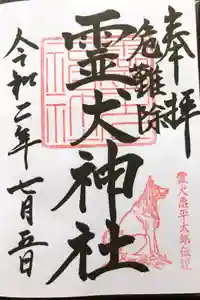 奉拝
危難除
霊犬神社
令和二年 七月五日
霊犬悉平太郎伝説